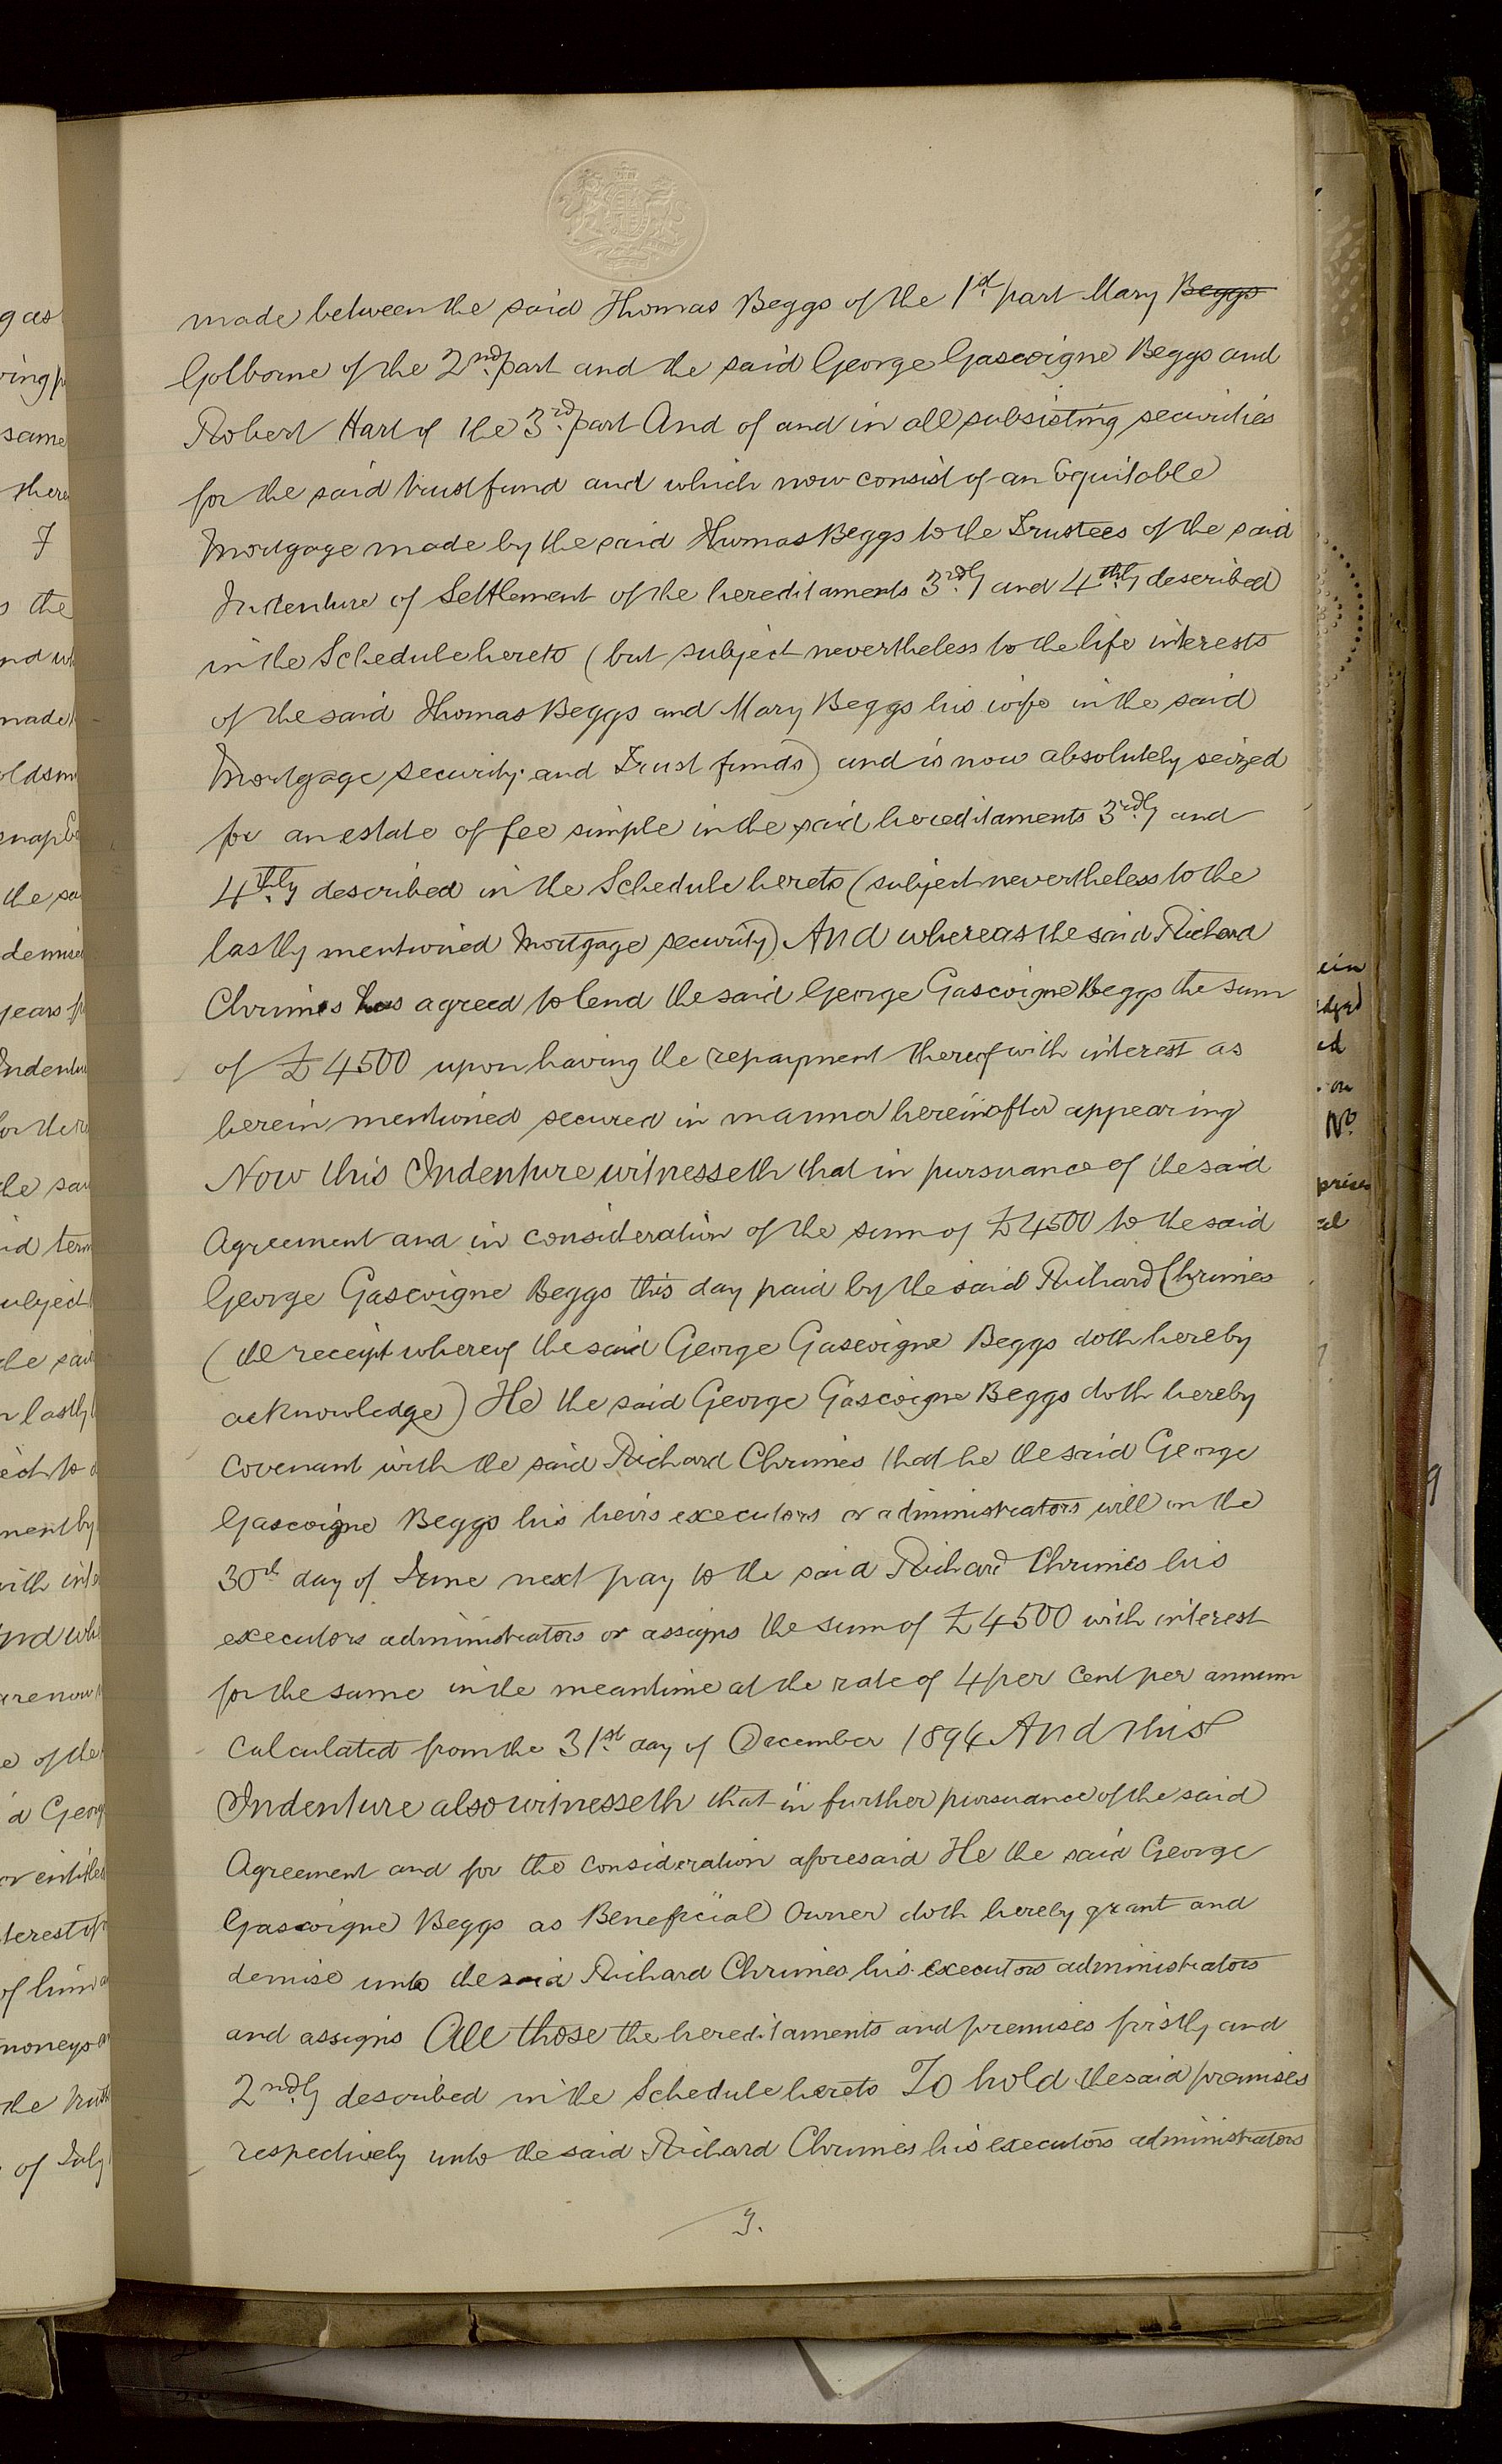 made between the said Thomas Beggs of the 1st part Mary Beggs
Golborne of the 2nd part and the said George Gascoigne Beggs and
Robert Hart of the 3rd part And of and in all subsisting securities
for the said trust fund and which now consist of an Equitable
Mortgage made by the said Thomas Beggs to the Trustees of the said
Indenture of Settlement of the hereditaments 3rdly and 4thly described
in the Schedule hereto (but subject nevertheless to the life interests
of the said Thomas Beggs and Mary Beggs his wife in the said
Mortgage security and Trust funds) and is now absolutely seized
for an estate of fee simple in the said hereditaments 3rdly and
4thly described in the Schedule hereto (subject nevertheless to the
lastly mentioned Mortgage security) And whereas the said Richard
Chrimes has agreed to lend the said George Gascoigne Beggs the sum
of £4500 upon having the repayment thereof with interest as
herein mentioned secured in manner hereinafter appearing
Now this Indenture witnesseth that in pursuance of the said
Agreement and in consideration of the sum of £4500 to the said
George Gascoigne Beggs this day paid by the said Richard Chrimes
(the receipt whereof the said George Gascoigne Beggs doth hereby
acknowledge) He the said George Gascoigne Beggs doth hereby
Covenant with the said Richard Chrimes that he the said George
Gascoigne Beggs his heirs executors or administrators will on the
30th day of June next pay to the said Richard Chrimes his
executors administrators or assigns the sum of £4500 with interest
for the same in the meantime at the rate of 4 per Cent per annum
Calculated from the 31st day of December 1894 And this
Indenture also witnesseth that in further pursuance of the said
Agreement and for the consideration aforesaid He the said George
Gascoigne Beggs as Beneficial Owner doth hereby grant and
demise unto the said Richard Chrimes his executors administrators
and assigns All those the hereditaments and premises firstly and
2ndly described in the Schedule hereto To hold the said premises
respectively unto the said Richard Chrimes his executors administrators
3.